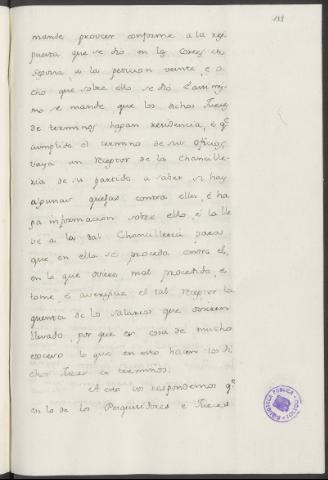 133
mande proveer conforme a la res
puesta que se dió en las Cortes de
Segovia, a la peticion veinte, e a
cho que sobre ello se dió. E asimis
mo se mande que los dichos Jueces
de terminos hagan residencia, e qe
cumplido el termino de sus oficios,
vaya un receptor de la Chancille
ria de su partido a saber si hay
algunas quejas contra ellos, é ha
ga informacion sobre ello, é la lle
ve a la tal Chancilleria para
que en ella se proceda contra el,
en lo que oviere mal procedido, e
tome, é averigüe el tal receptor la
quenta de los salarios que ovieren
llevado, por que es cosa de mucho
exceso lo que en esto hacen los di
chos Jueces de terminos.
A esto vos respondemos qe
en lo de los Pesquisidores e Jueces
BIBLIOTECA PUBLICA
TOLEDO